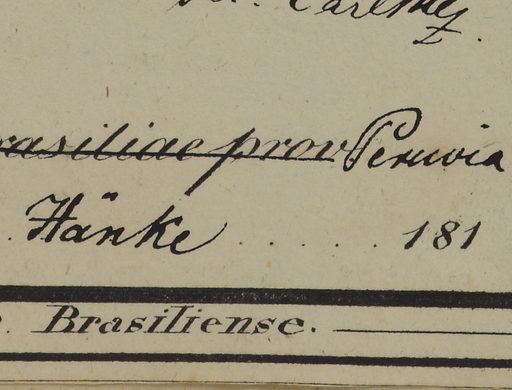 ~~rasiliae prov~~ Peruvia
. Hänke . . . . . . 181
. Brasiliense.